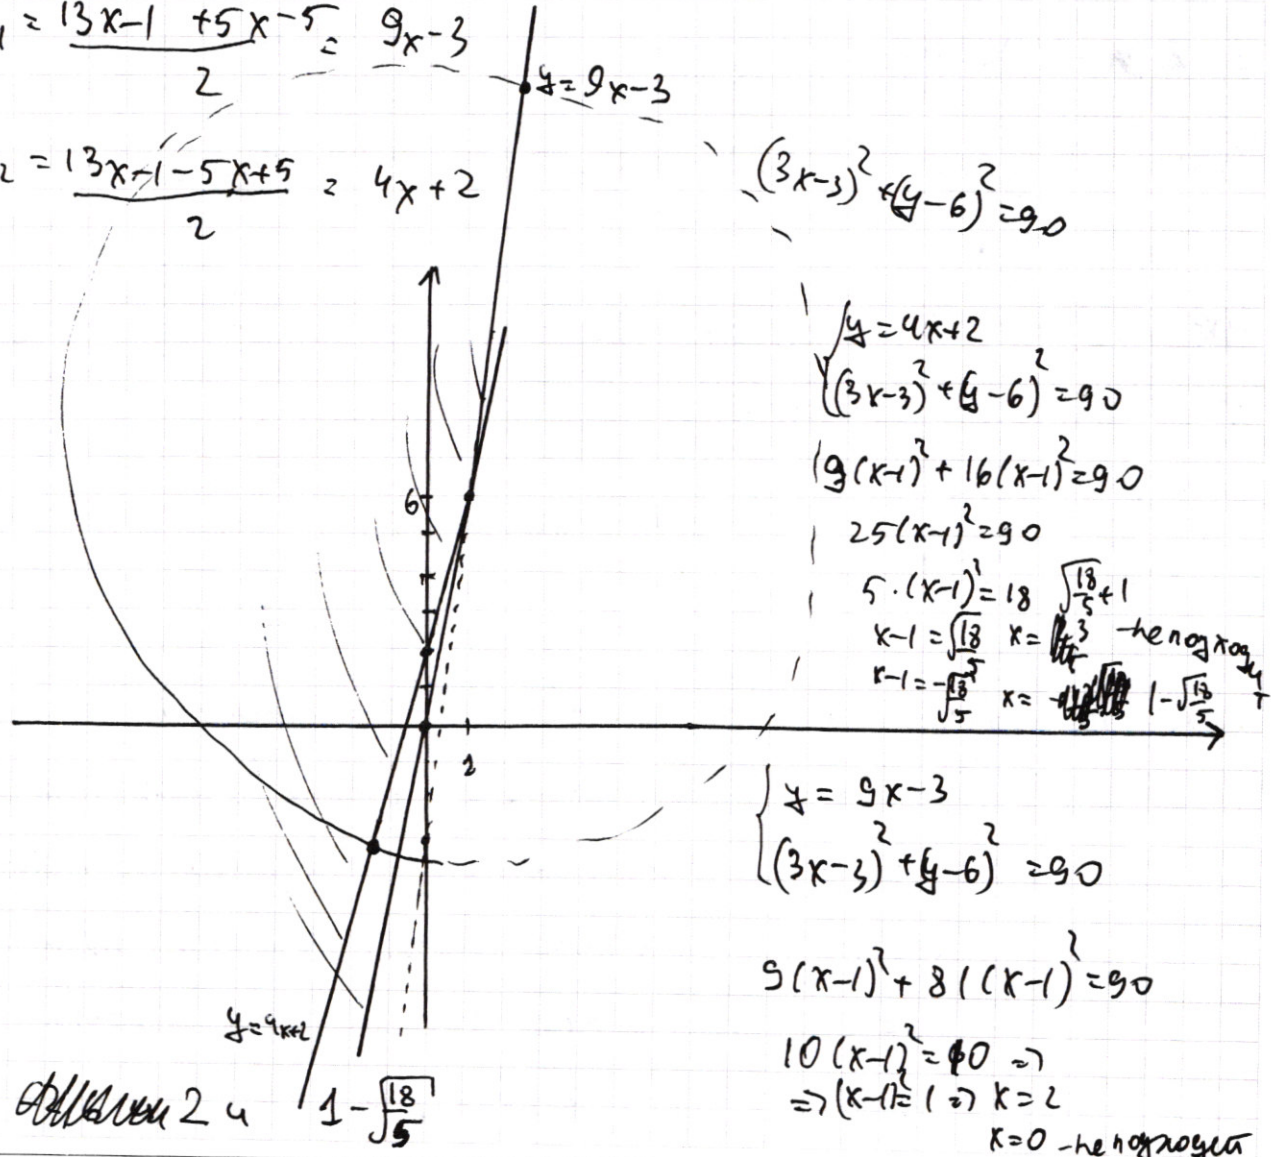 1 = 13x-1 +5x-5 / 2 = 9x-3
y=9x-3
2 = 13x-1-5x+5 / 2 = 4x+2
(3x-3)² + (y-6)² = 90
{ y = 4x+2
(3x-3)² + (y-6)² = 90
9(x-1)² + 16(x-1)² = 90
25(x-1)² = 90
5·(x-1)² = 18 √18/5 + 1
x-1 = √18/5 x = -не подходит
x-1 = -√18/5 x = 1-√18/5
6
1
{ y = 9x-3
(3x-3)² + (y-6)² = 90
9(x-1)² + 81(x-1)² = 90
y=4x+2
10(x-1)² = 10 =>
=> (x-1)² = 1 => x=2
x=0 -не подходит
2 и 1-√18/5